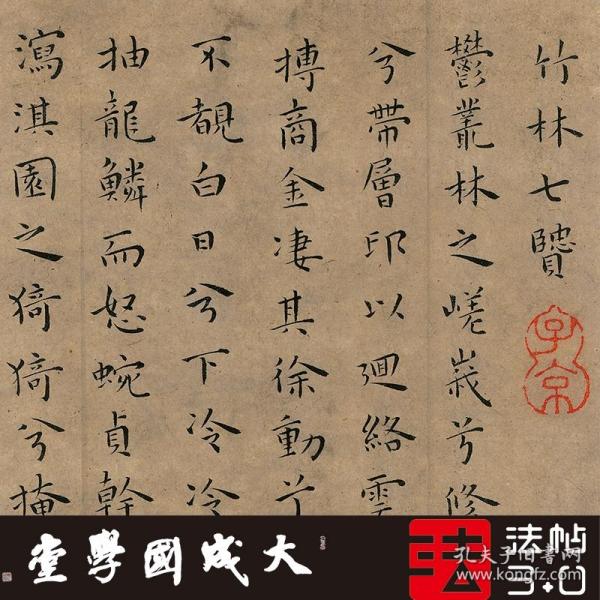 竹林七贤
鬱叢林之嵯峩兮修
兮帶層邙以迴絡雲
摶商金凄其徐動兮
不覩白日兮下冷冷
抽龍鱗而怒蜿貞幹
瀉淇園之猗猗兮掩
子京
大成國學堂
法帖
孔夫子旧书网
www.kongfz.com